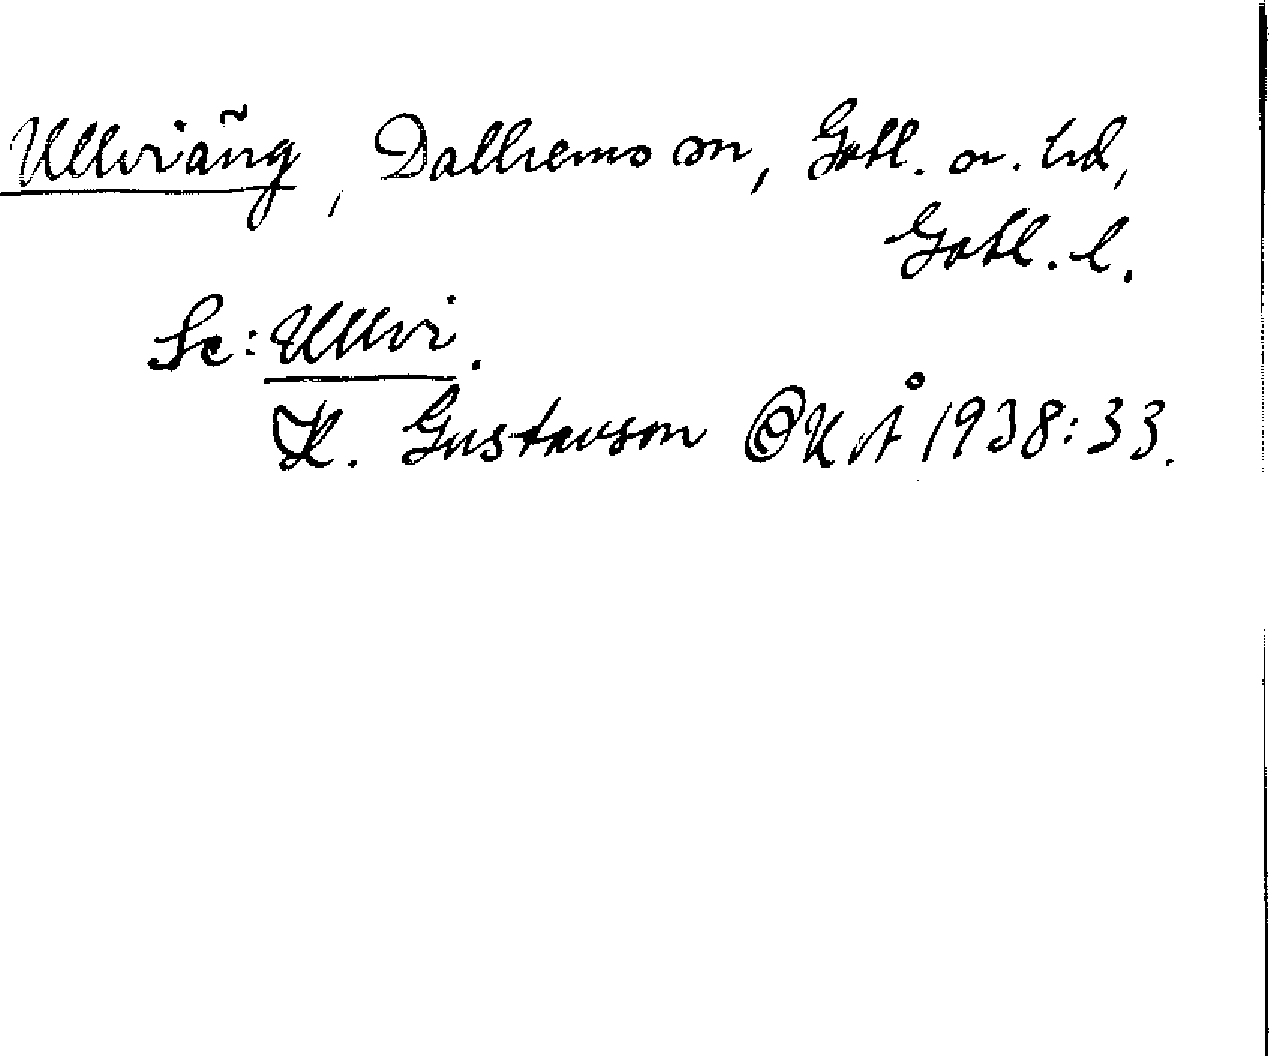 Ullviäng, Dalhems sn, Gotl. n. hd,
Gotl. l.
Se: Ullvi.
H. Gustavson OUÅ 1938:33.